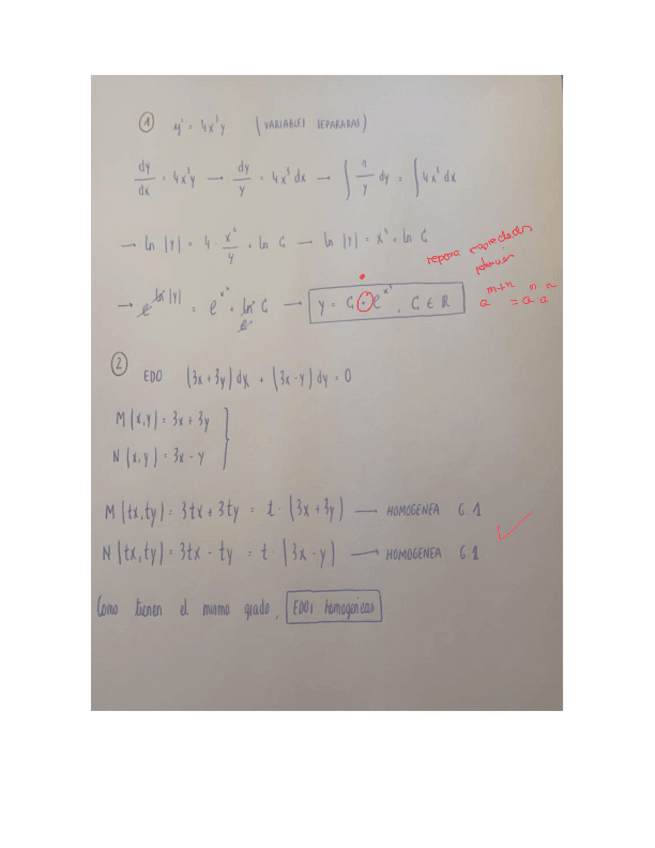 ① y' = 4x³y (VARIABLES SEPARADAS)
dy/dx = 4x³y → dy/y = 4x³dx → ∫ 1/y dy = ∫ 4x³ dx
→ ln |y| = 4 · x⁴/4 + ln C → ln |y| = x⁴ + ln C
repasa propiedades
potencias
→ e^ln|y| = e^x⁴ + e^ln C → y = C · e^x⁴, C ∈ R
a^m+n = a^m a^n
② EDO (3x+3y)dx + (3x-y)dy = 0
M(x,y) = 3x+3y
N(x,y) = 3x-y
M(tx,ty) = 3tx+3ty = t · (3x+3y) → HOMOGENEA G.1
N(tx,ty) = 3tx-ty = t · (3x-y) → HOMOGENEA G1
Como tienen el mismo grado, EDOs homogeneas